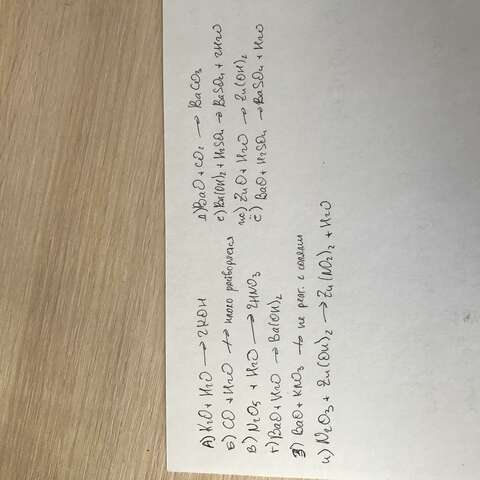 А) K2O + H2O → 2KOH
Б) CO + H2O ↛ плохо растворяется
В) N2O5 + H2O → 2HNO3
Г) BaO + H2O → Ba(OH)2
З) BaO + KNO3 ↛ не реаг. с солями
и) N2O3 + Zn(OH)2 → Zn(NO2)2 + H2O
Д) BaO + CO2 → BaCO3
е) Ba(OH)2 + H2SO4 → BaSO4 + 2H2O
ж) ZnO + H2O → Zn(OH)2
ё) BaO + H2SO4 → BaSO4 + H2O